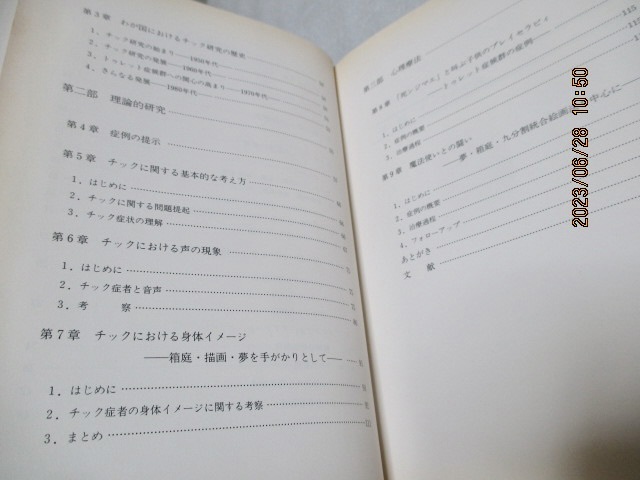 第3章 わが国におけるチック研究の歴史
1．チック研究の始まり——1950年代
2．チック研究の発展——1960年代
3．トゥレット症候群への関心の高まり——1970年代
4．さらなる発展——1980年代
第二部 理論的研究
第4章 症例の提示
第5章 チックに関する基本的な考え方
1．はじめに
2．チックに関する問題提起
3．チック症状の理解
第6章 チックにおける声の現象
1．はじめに
2．チック症者と音声
3．考 察
第7章 チックにおける身体イメージ
——箱庭・描画・夢を手がかりとして——
1．はじめに
2．チック症者の身体イメージに関する考察
3．まとめ
第三部 心理療法 115
と叫ぶ子供のプレイセラピィ
——トゥレット症候群の症例
1．はじめに
2．症例の概要
3．治療過程
第9章 魔法使いとの闘い
——夢・箱庭・九分割統合絵画 中心に
1．はじめに
2．症例の概要
3．治療過程
4．フォローアップ
あとがき
文 献
2023/06/28 10:50